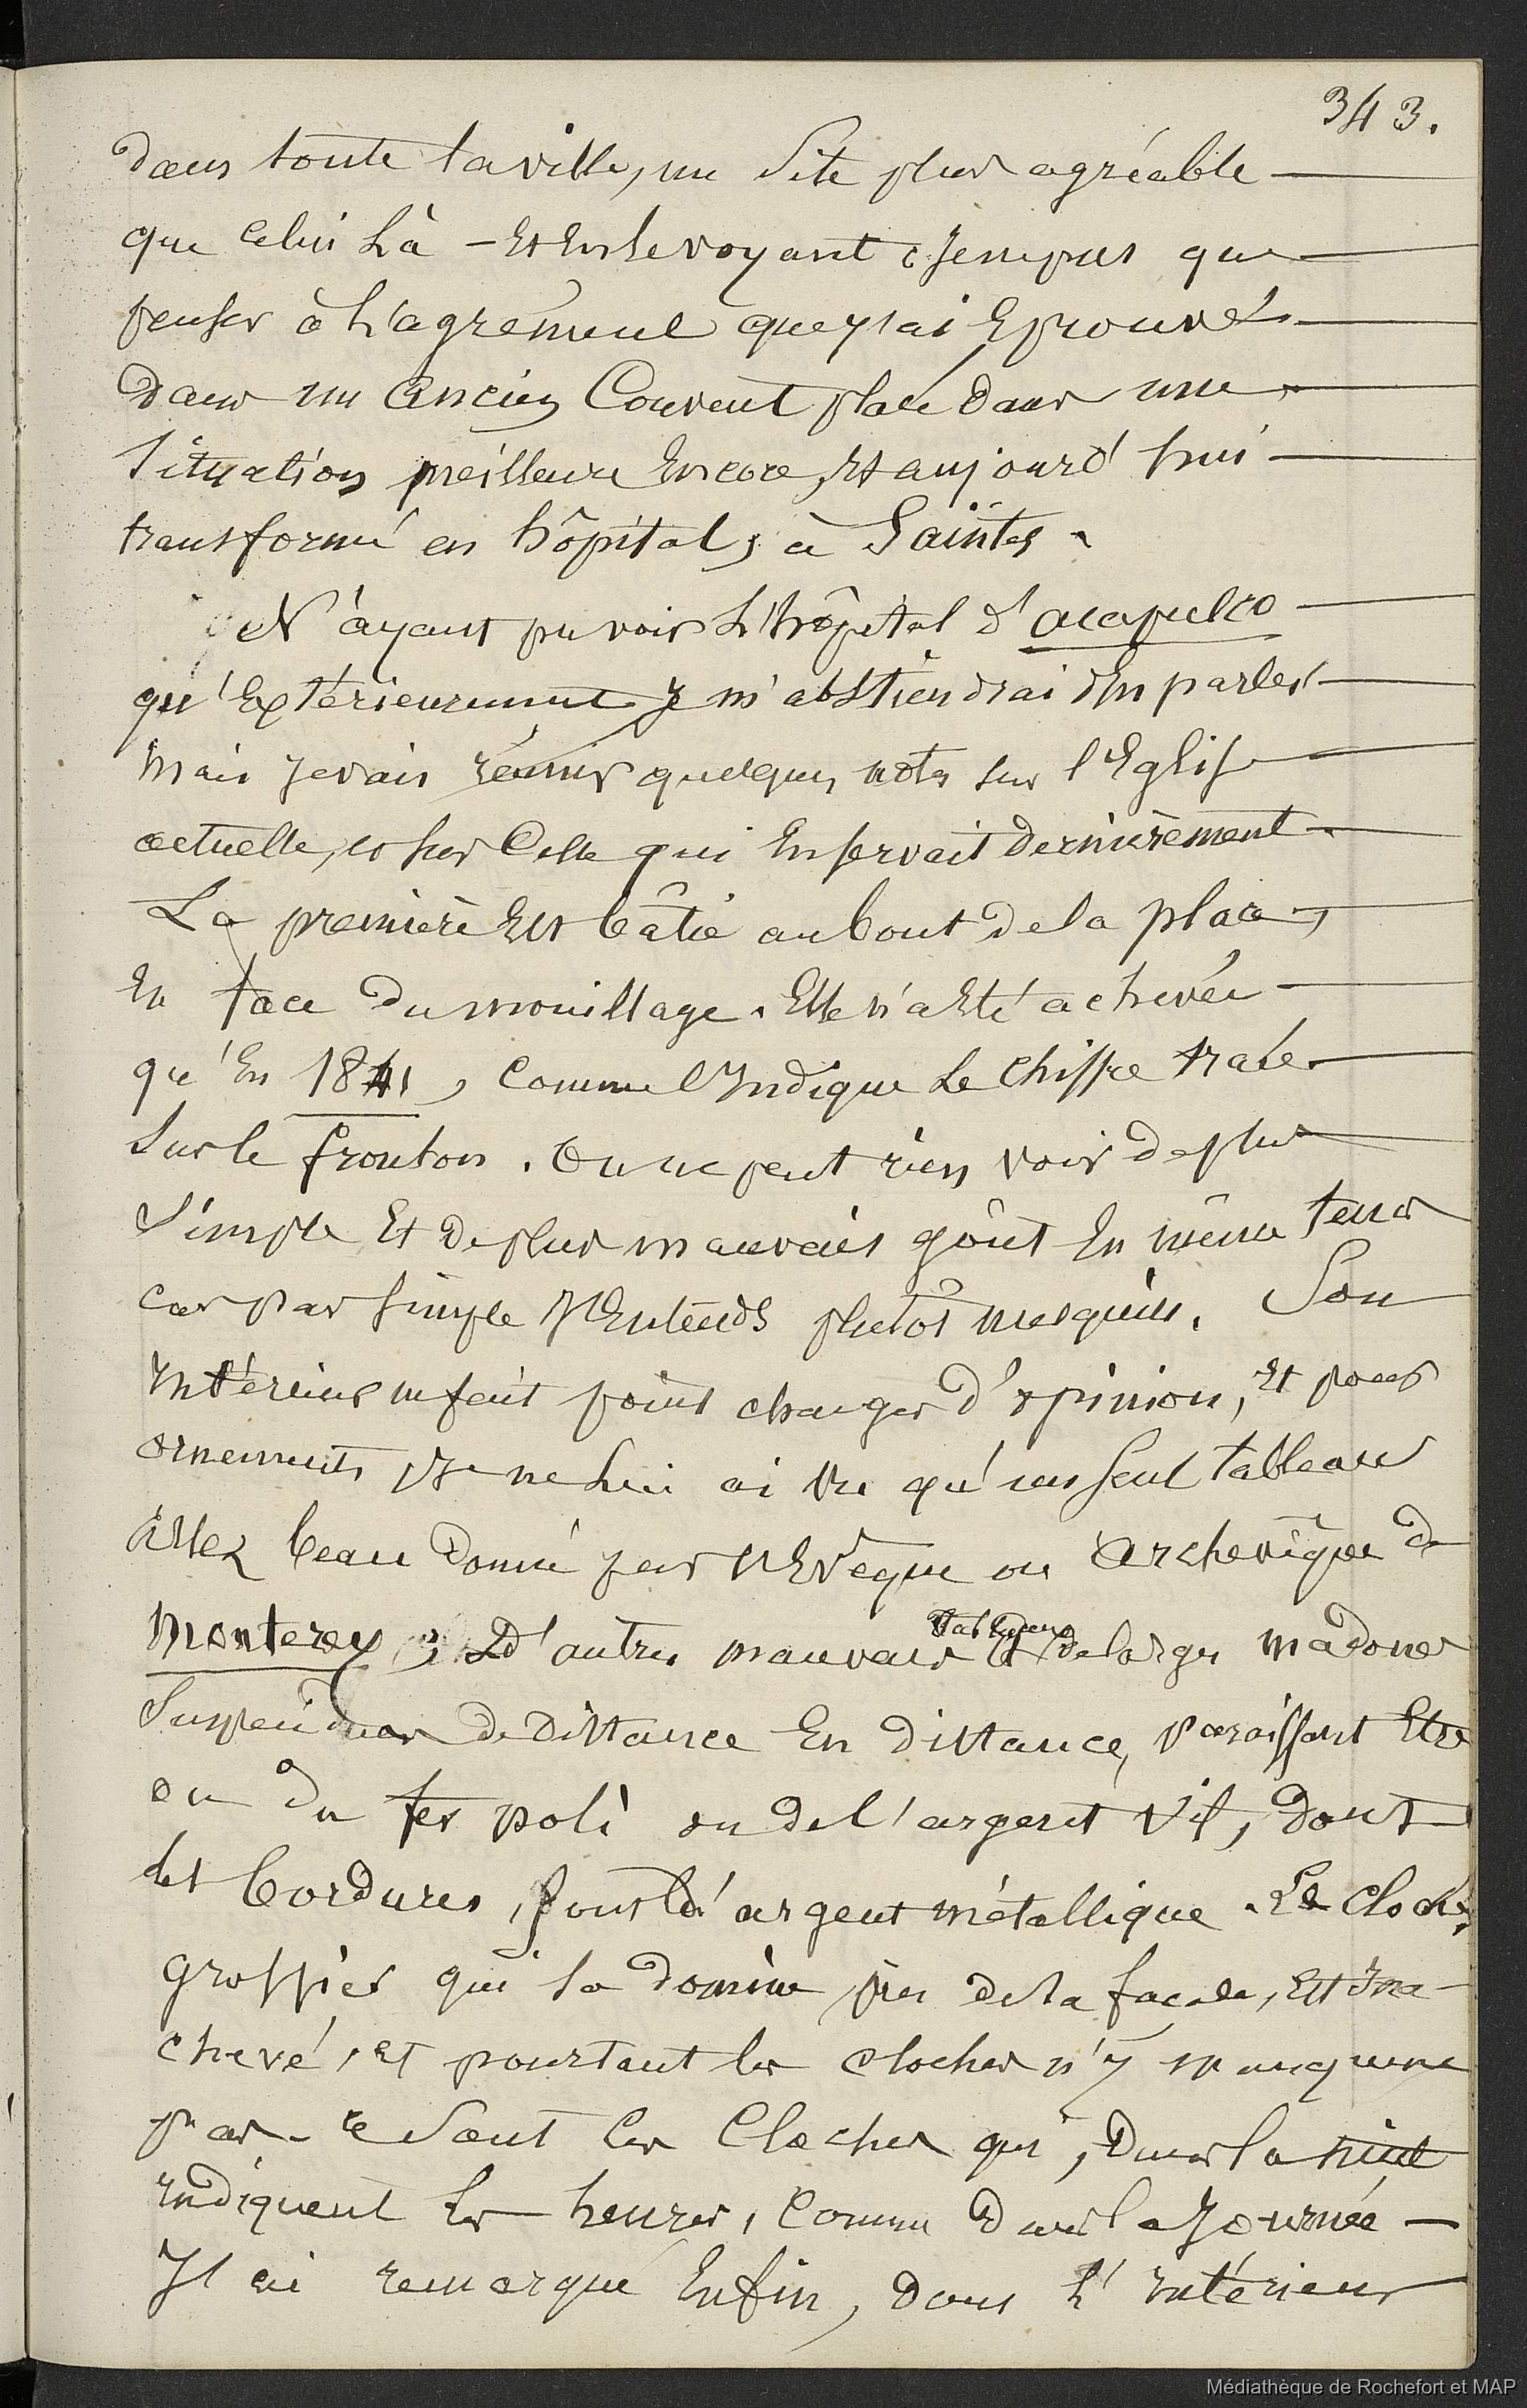 343.
dans toute la ville, un site plus agréable
que celui là - Et En le voyant, je ne pus que
penser à l'agrément que j'ai Eprouvé
dans un ancien Couvent placé dans une
situation meilleure Encore, Et aujourd'hui
transformé en hôpital, à Saintes.
N'ayant pu voir L'hôpital d'acapulco
qu'Extérieurement je m'abstiendrai d'En parler
Mais je vais réunir quelques notes sur l'Eglise
actuelle, et sur Celle qui En servait dernièrement.
La première Est bâtie au bout de la place,
En face du mouillage. Elle n'a Eté achevée
qu'En 1841, comme l'Indique Le chiffre tracé
sur le fronton. On ne peut rien voir de plus
simple Et de plus mauvais goût En même tems
car par simple j'Entends plutôt mesquin. Son
Intérieur ne fait point changer d'opinion, Et pour
ornements je ne Lui ai vu qu'un seul tableau
assez beau donné par l'Evêque ou Archevêque de
Monterey, Et d'autres mauvais tableaux Et de larges madones
suspendues de distance En distance, paraissant Etre
ou du fer poli ou de l'argent vif, dont
les bordures sont d'argent métallique. Le clocher
grossier qui la domine près de la façade, Est Ina-
chevé, Et pourtant les cloches n'y manquent
pas - ce sont les Cloches qui, dans la nuit
Indiquent les heures, comme dans la Journée -
J'ai remarqué Enfin, dans l'Intérieur
Médiathèque de Rochefort et MAP